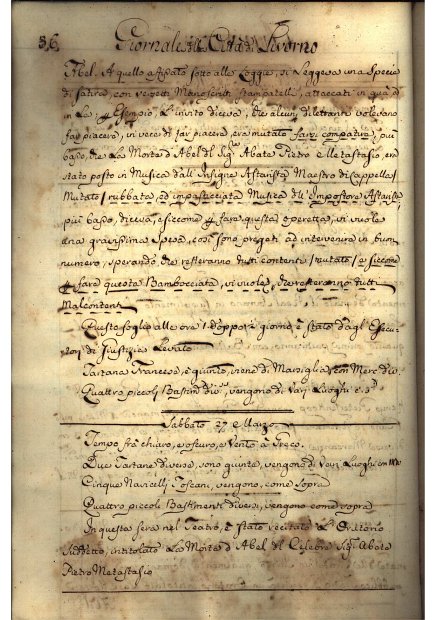 36. Giornale della Città di Livorno
Abel. A quello afisato sotto alle Loggie, si Leggeva una Specie
di satira, con versetti Manoscritti stampatelli, attaccati in quà, e
in La: p Esempio, L'invito diceva, che alcuni diletranti volevano
far piacere, in vece di far piacere, era mutato farsi compatire, più
basso, che La Morte d'Abel del Sigre Abate Pietro Metastasio, era
stato posto in Musica dall'Insigne Maestro di cappella
Mutato rubbata, ed impasticciata Musica dell'Impostore
più basso, diceva, e siccome p fare questa operetta, vi vuole
una gravissima spesa, così sono pregati ad intervenire in buon
numero, sperando che resteranno tutti contenti mutato, e siccome
p fare questa Bambocciata, vi vuole, che resteranno tutti
Malcontenti
Questo foglio alle ore 1 doppo giorno è stato dagl'Esecu-
tori di Giustizia Levato
Tartana Francese, è giunto, viene di Marsiglia, con Merc div.
Quattro piccoli Bastim div, vengono di Vari Luoghi e
Sabbato 27 Marzo
Tempo frà chiaro, e oscuro, e Vento à Greco.
Due Tartane diverse, sono giunte, vengono di Vari Luoghi con
Cinque Navicelli Toscani, vengono, come sopra
Quattro piccoli Bastimenti diversi, vengono come sopra
In questa sera nel Teatro, è stato recitato L'Oratorio
Sudetto, intitolato La Morte d'Abel del Celebre Sig. Abate
Pietro Metastasio